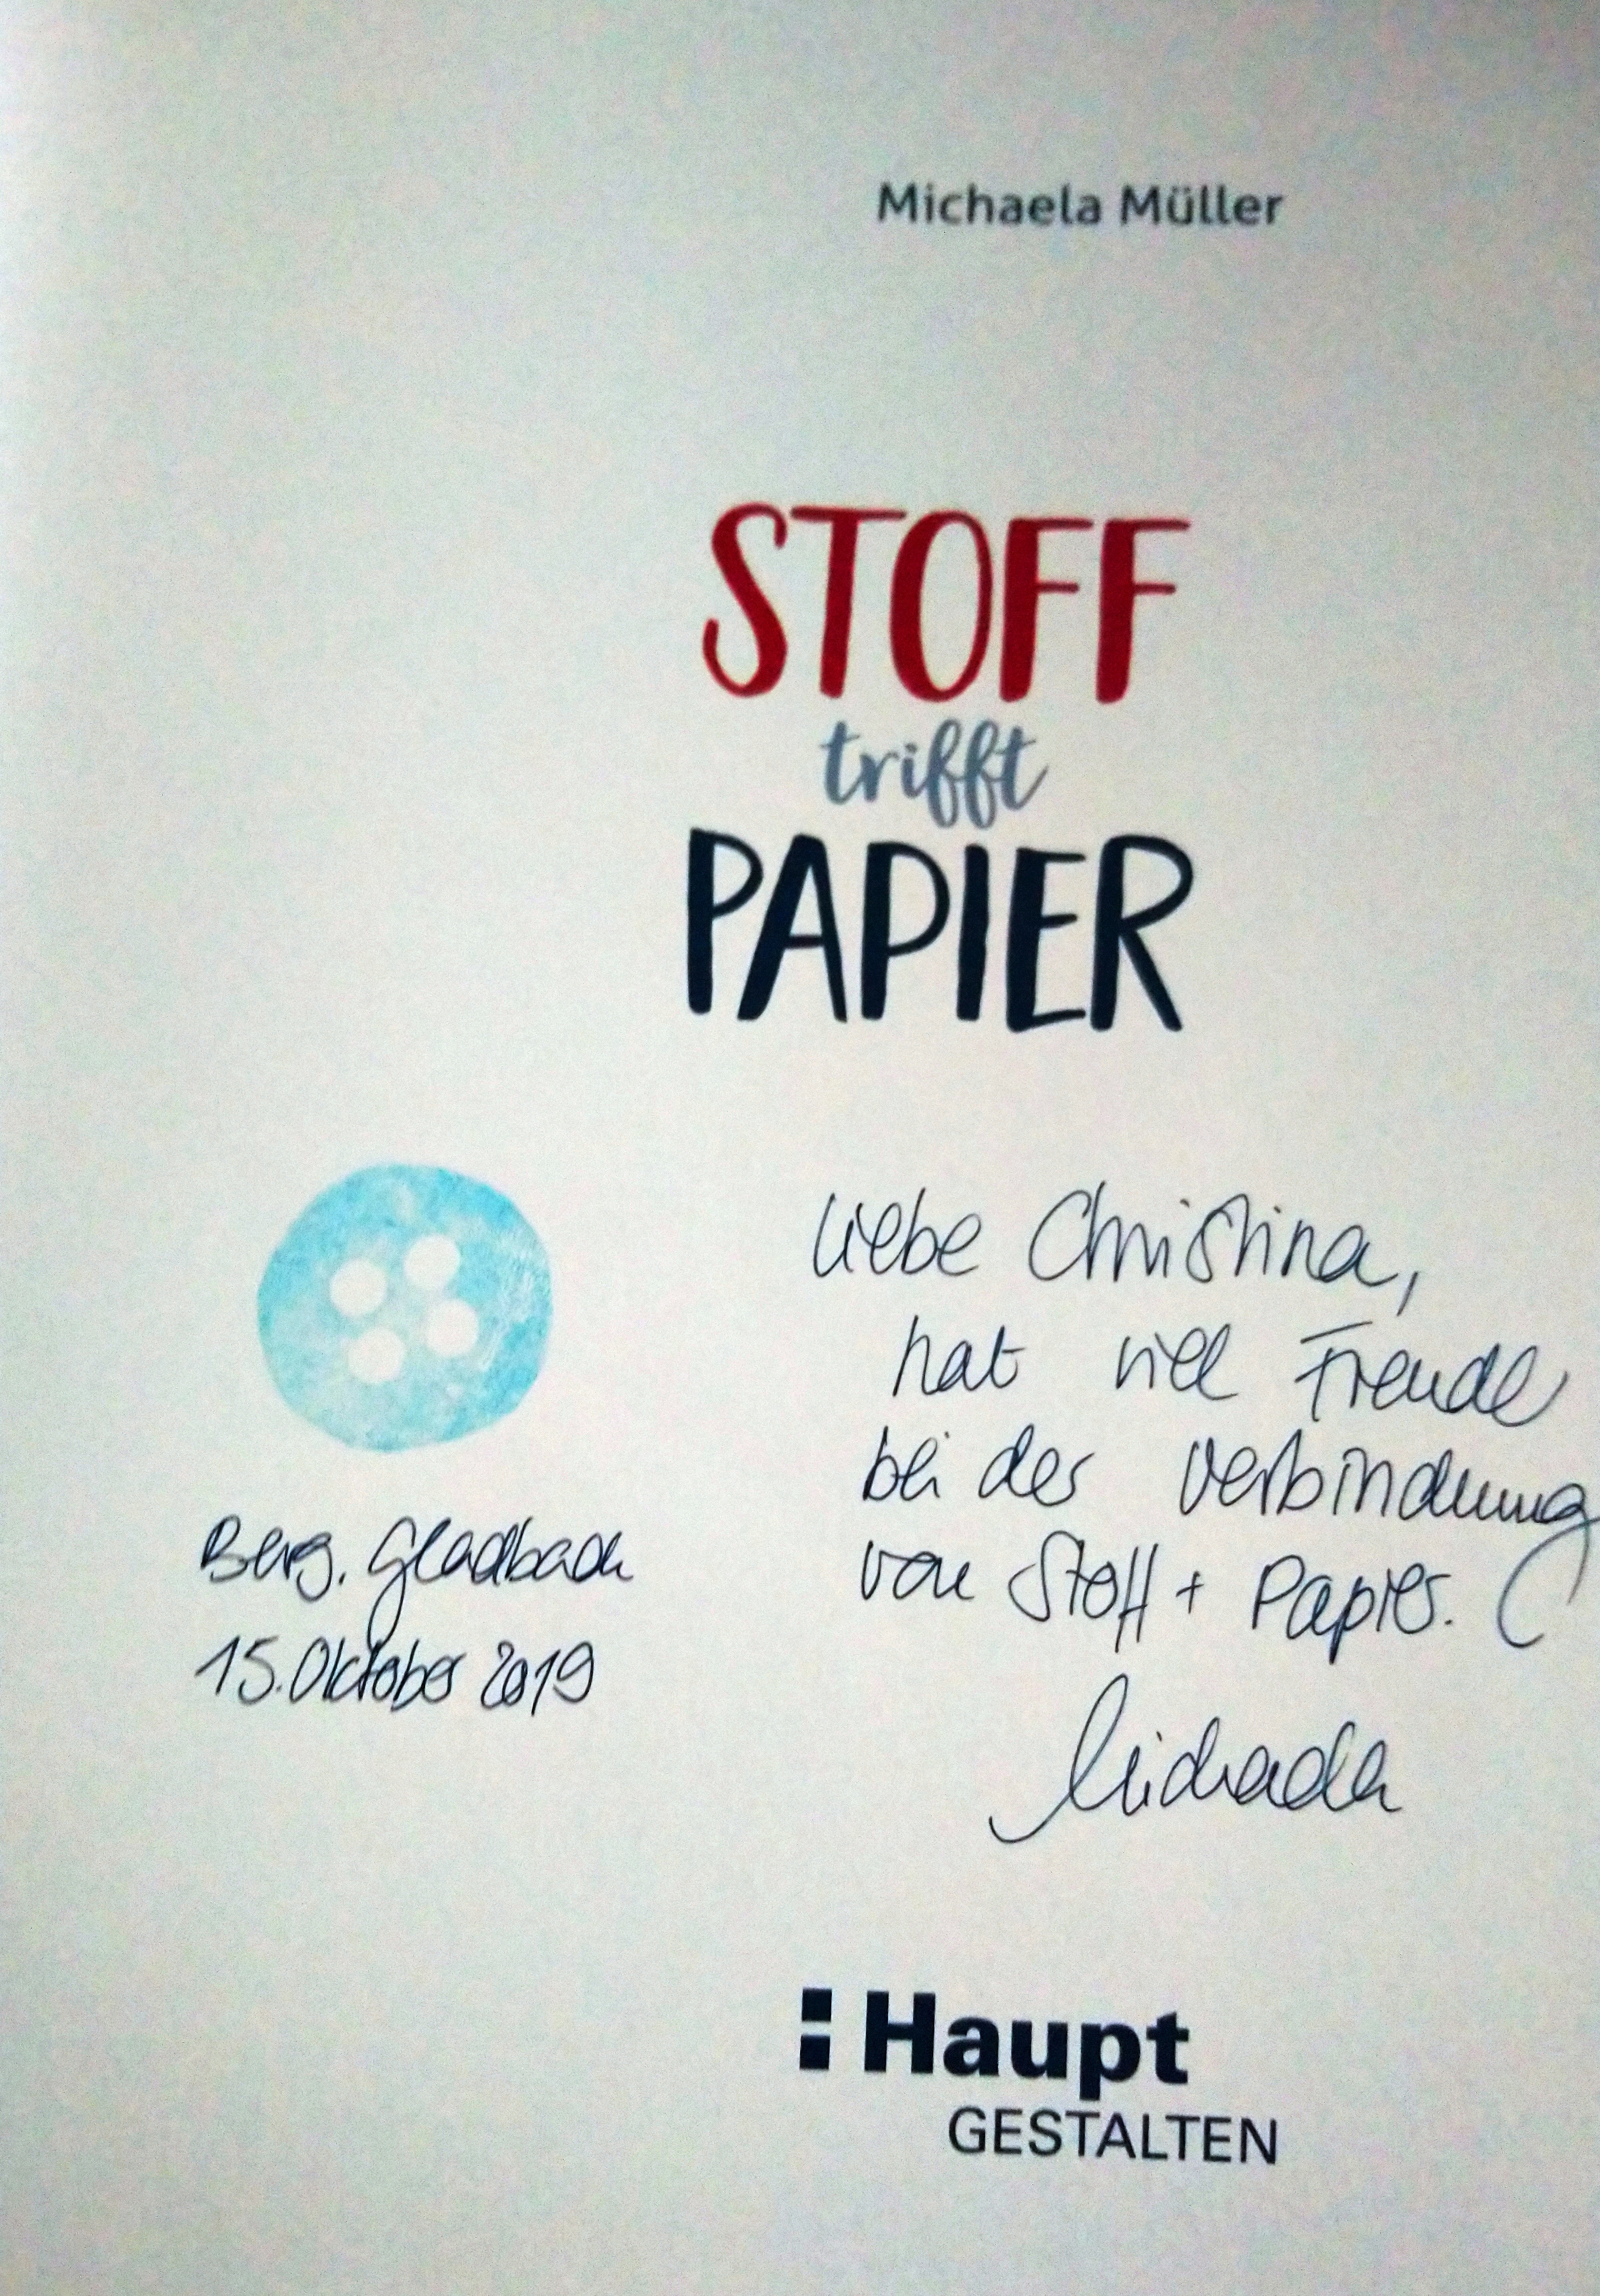 Michaela Müller
STOFF
trifft
PAPIER
Liebe Christina,
hat viel Freude
bei der Verbindung
von Stoff + Papier.
Michaela
Berg. Gladbach
15. Oktober 2019
Haupt
GESTALTEN